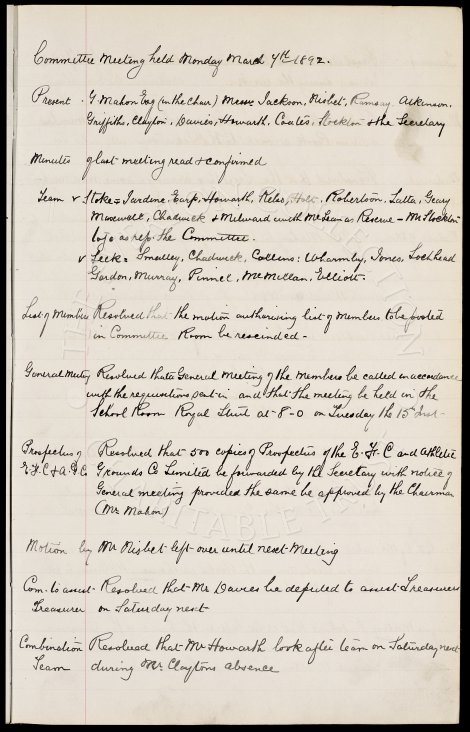 Committee Meeting held Monday March 7th 1892.
Present. G. Mahon Esq (in the Chair) Messrs Jackson, Nisbet, Ramsay, Atkinson,
Griffiths, Clayton, Davies, Howarth, Coates, Stockton & the Secretary
Minutes of last meeting read & confirmed
Team v Stoke: Jardine, Earp, Howarth, Kelso, Holt, Robertson, Latta, Geary
Maxwell, Chadwick & Milward with McLean as Reserve - Mr Stockton
to go as rep. the Committee.
v Leek: Smalley, Chadwick, Collins: Wharmby, Jones, Lochhead
Gordon, Murray, Pinnel, McMillan, Elliott.
List of Members Resolved that the motion authorising list of members to be posted
in Committee Room be rescinded -
General Meeting Resolved that a General Meeting of the Members be called in accordance
with the requisitions sent in and that the meeting be held in the
School Room Royal Street at 8-0 on Tuesday the 15th Inst-
Prospectus of Resolved that 500 copies of Prospectus of the E. F. C and Athletic
E. F. C & A. G Co Grounds Co Limited be forwarded by the Secretary with notice of
General meeting provided the same be approved by the Chairman
(Mr Mahon)
Motion by Mr Nisbet left over until next Meeting
Com. to assist Resolved that Mr Davies be deputed to assist Treasurer
Treasurer on Saturday next
Combination Resolved that Mr Howarth look after team on Saturday next
Team during Mr Claytons absence